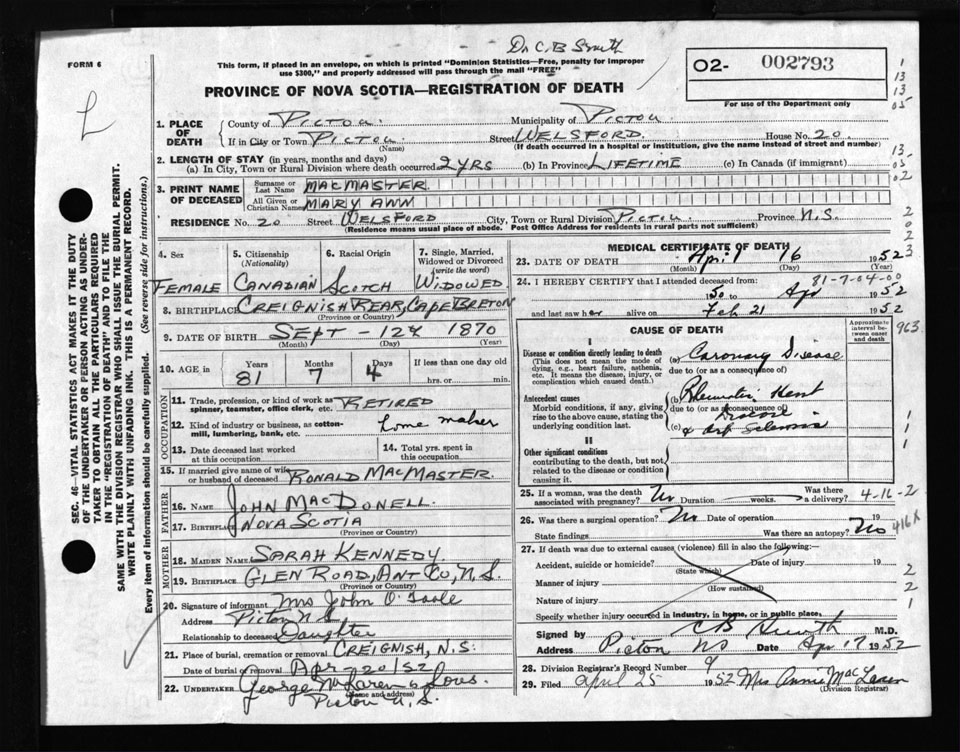 Dr C.B Smith
FORM 6
This form, if placed in an envelope, on which is printed "Dominion Statistics—Free, penalty for improper
use $300," and properly addressed will pass through the mail "FREE"
O2- 002793
For use of the Department only
PROVINCE OF NOVA SCOTIA—REGISTRATION OF DEATH
L
1
13
13
05
13
05
02
2
0
2
2
3
963
1
1
2
2
1
SEC. 46—VITAL STATISTICS ACT MAKES IT THE DUTY
OF THE UNDERTAKER OR PERSON ACTING AS UNDER-
TAKER TO OBTAIN ALL THE PARTICULARS REQUIRED
IN THE "REGISTRATION OF DEATH" AND TO FILE THE
SAME WITH THE DIVISION REGISTRAR WHO SHALL ISSUE THE BURIAL PERMIT.
WRITE PLAINLY WITH UNFADING INK. THIS IS A PERMANENT RECORD.
Every item of information should be carefully supplied. (See reverse side for instructions.)
1. PLACE OF DEATH
County of PICTOU Municipality of PICTOU
If in City or Town PICTOU Street WELSFORD House No. 20
(Name) (If death occurred in hospital or institution, give the name instead of street and number)
2. LENGTH OF STAY (in years, months and days)
(a) In City, Town or Rural Division where death occurred 2 YRS (b) In Province LIFETIME (c) In Canada (if immigrant)
3. PRINT NAME OF DECEASED
Surname or Last Name MACMASTER
All Given or Christian Names MARY ANN
RESIDENCE No. 20 Street WELSFORD City, Town or Rural Division PICTOU Province N.S.
(Residence means usual place of abode. Post Office Address for residents in rural parts not sufficient)
4. Sex FEMALE
5. Citizenship (Nationality) CANADIAN
6. Racial Origin SCOTCH
7. Single, Married, Widowed or Divorced (write the word) WIDOWED
8. BIRTHPLACE CREIGNISH REAR, CAPE BRETON
(Province or Country)
9. DATE OF BIRTH SEPT - 12th 1870
(Month) (Day) (Year)
10. AGE in Years 81 Months 7 Days 4 If less than one day old hrs. or min.
OCCUPATION
11. Trade, profession, or kind of work as spinner, teamster, office clerk, etc. RETIRED
12. Kind of industry or business, as cotton-mill, lumbering, bank, etc. home maker
13. Date deceased last worked at this occupation
14. Total yrs. spent in this occupation
15. If married give name of wife or husband of deceased RONALD MACMASTER
FATHER
16. NAME JOHN MACDONELL
17. BIRTHPLACE NOVA SCOTIA
MOTHER
18. MAIDEN NAME SARAH KENNEDY
19. BIRTHPLACE GLEN ROAD, ANT CO, N.S.
(Province or Country)
20. Signature of informant Mrs John O'Toole
Address Pictou N.S.
Relationship to deceased Daughter
21. Place of burial, cremation or removal CREIGNISH, N.S.
Date of burial or removal Apr-20/52
22. UNDERTAKER George McLaren & Sons.
(Name and address)
Pictou N.S.
MEDICAL CERTIFICATE OF DEATH
23. DATE OF DEATH April 16 1952
(Month) (Day) (Year)
81-7-04-00
24. I HEREBY CERTIFY that I attended deceased from:
50 to Apr 1952
and last saw her alive on Feb 21 1952
CAUSE OF DEATH
Approximate interval between onset and death
I
Disease or condition directly leading to death
(This does not mean the mode of dying, e.g., heart failure, asthenia, etc. It means the disease, injury, or complication which caused death.)
(a) Coronary Disease
due to (or as a consequence of)
Antecedent causes
Morbid conditions, if any, giving rise to the above cause, stating the underlying condition last.
(b) Rheumatic Heart Disease
due to (or as a consequence of)
(c) & Art Sclerosis
II
Other significant conditions
contributing to the death, but not related to the disease or condition causing it.
25. If a woman, was the death associated with pregnancy? No Duration weeks. Was there a delivery?
4-16-2
26. Was there a surgical operation? No Date of operation 19
State findings Was there an autopsy? No
416X
27. If death was due to external causes (violence) fill in also the following:
Accident, suicide or homicide? Date of injury 19
(State which)
Manner of injury
(How sustained)
Nature of injury
Specify whether injury occurred in industry, in home, or in public place.
Signed by CB Smith M.D.
Address Pictou NS Date Apr 17 1952
28. Division Registrar's Record Number 9
29. Filed April 25 1952 Mrs Annie MacLaren
(Division Registrar)